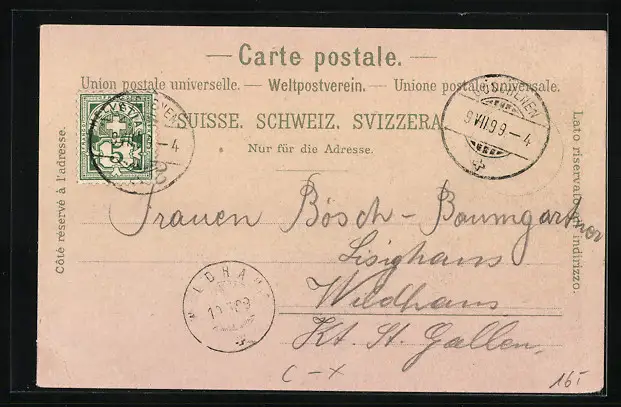 Carte postale.
Union postale universelle. — Weltpostverein. — Unione postale universale.
SUISSE. SCHWEIZ. SVIZZERA
Nur für die Adresse.
Côté réservé à l'adresse.
Lato riservato all' indirizzo.
HELVETIA
5
GÖSCHENEN
9.VII.99.–4
Frauen Bösch-Baumgartner
Lisighaus
Wildhaus
Kt. St. Gallen.
WILDHAUS
C–x